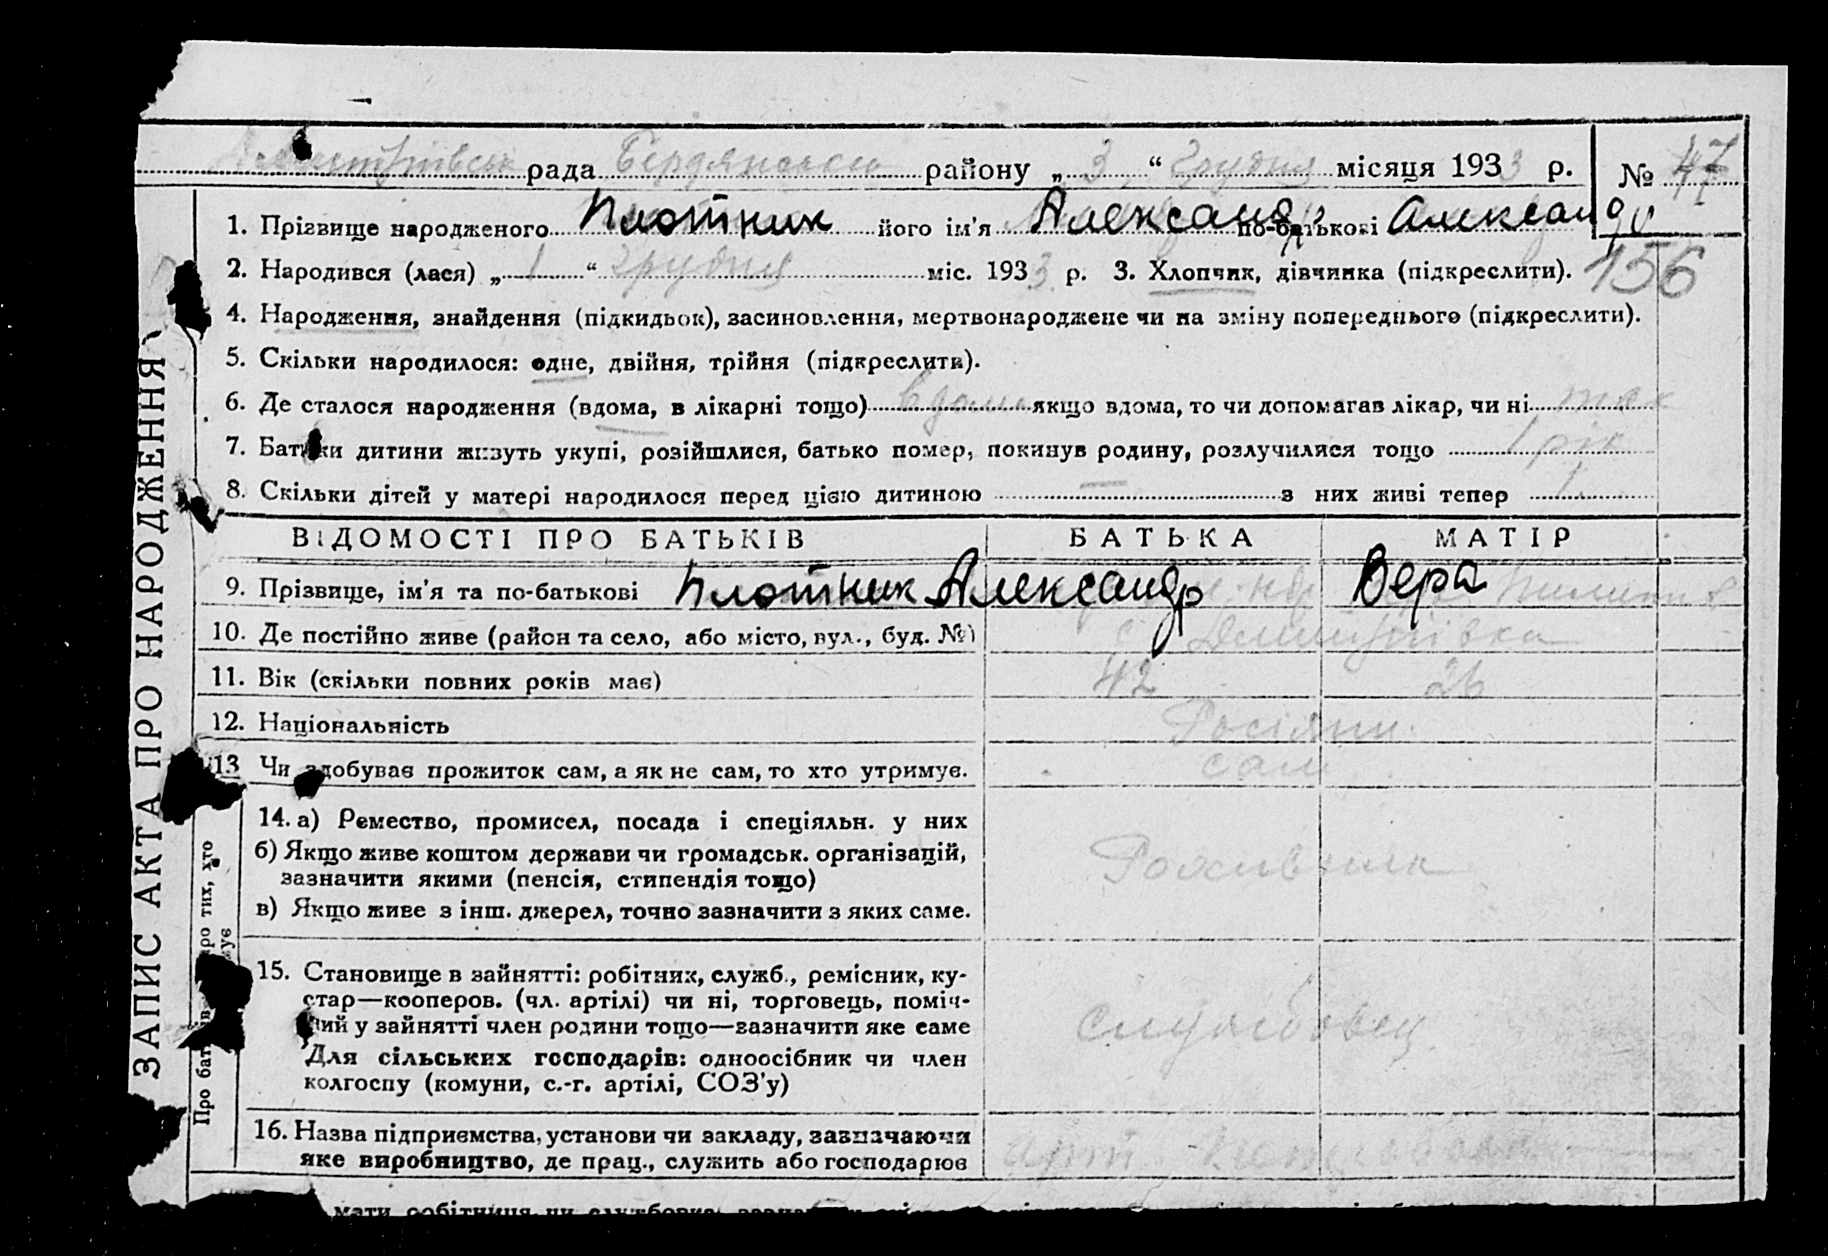 ЗАПИС АКТА ПРО НАРОДЖЕННЯ
рада Бердянського району „ 3 “ Грудня місяця 1933 р. № 47
1. Прізвище народженого Плотник його ім'я Александр по-батькові Александро
156
2. Народився (лася) „ 1 “ грудня міс. 1933 р. 3. Хлопчик, дівчинка (підкреслити).
4. Народження, знайдення (підкидьок), засиновлення, мертвонароджене чи на зміну попереднього (підкреслити).
5. Скільки народилося: одне, двійня, трійня (підкреслити).
6. Де сталося народження (вдома, в лікарні тощо) вдома якщо вдома, то чи допомагав лікар, чи ні так
7. Батьки дитини живуть укупі, розійшлися, батько помер, покинув родину, розлучилися тощо 1 рік
8. Скільки дітей у матері народилося перед цією дитиною — з них живі тепер 1
ВІДОМОСТІ ПРО БАТЬКІВ БАТЬКА МАТІР
9. Прізвище, ім'я та по-батькові Плотник Александр Вера
10. Де постійно живе (район та село, або місто, вул., буд. №) с Дмитрівка
11. Вік (скільки повних років має) 42 26
12. Національність Росіяни
13 Чи здобуває прожиток сам, а як не сам, то хто утримує. сам
Про бат про тих, хто
14. а) Ремество, промисел, посада і спеціяльн. у них
б) Якщо живе коштом держави чи громадськ. організацій,
зазначити якими (пенсія, стипендія тощо)
в) Якщо живе з інш. джерел, точно зазначити з яких саме.
15. Становище в зайнятті: робітник, служб., ремісник, ку-
стар—кооперов. (чл. артілі) чи ні, торговець, поміч-
ний у зайнятті член родини тощо—зазначити яке саме
Для сільських господарів: одноосібник чи член
колгоспу (комуни, с.-г. артілі, СОЗ'у)
службовец
16. Назва підприємства, установи чи закладу, зазначаючи
яке виробництво, де прац., служить або господарює